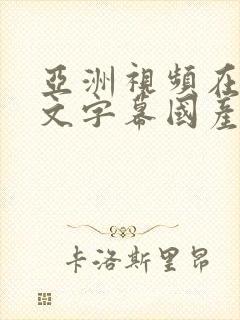 亞洲視頻在
文字幕國產
卡洛斯里昂